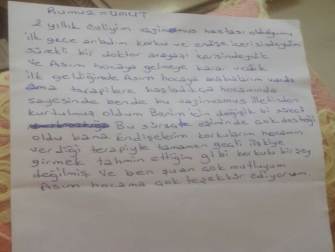 Rumuz = UMUT
2 yıllık evliyim vajinismus hastası olduğumu
ilk gece anladım korku ve endişe içerisindeydim
sürekli bir doktor arayışı içerisindeydik
ve Asım hocaya gelmeye karar verdik
ilk geldiğimde Asım hocaya
ama terapilere başladıkça hocamında
sayesinde bende bu vajinusmus illetinden
kurtulmuş oldum
Bu süreçte eşiminde çok desteği
oldu bana endişelerim korkularım hocamın
verdiği terapiyle tamamen geçti ilişkiye
girmek tahmin ettiğim gibi korkulu bir şey
değilmiş ve ben şuan çok mutluyum
Asım hocama çok teşekkür ediyorum.